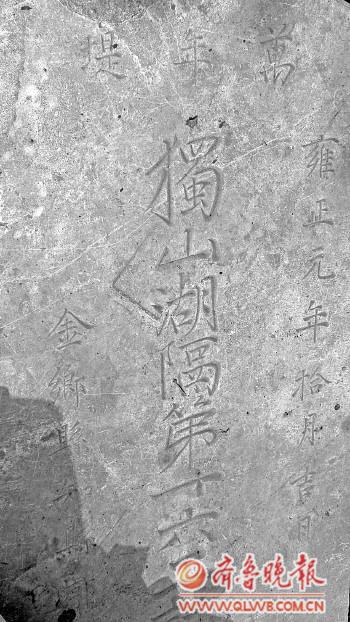 萬年堤
雍正元年拾月吉日
獨山湖隔第十六
金鄉縣
齐鲁晚报
WWW.QLWB.COM.CN